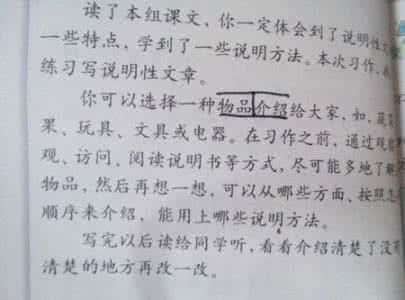 读了本组课文，你一定体会到了说明性文
一些特点，学到了一些说明方法。本次习作，
练习写说明性文章。
你可以选择一种物品介绍给大家，如，蔬
果、玩具、文具或电器。在习作之前，通过观
观、访问、阅读说明书等方式，尽可能多地了解
物品，然后再想一想，可以从哪些方面、按照
顺序来介绍、能用上哪些说明方法。
写完以后读给同学听，看看介绍清楚了没
清楚的地方再改一改。